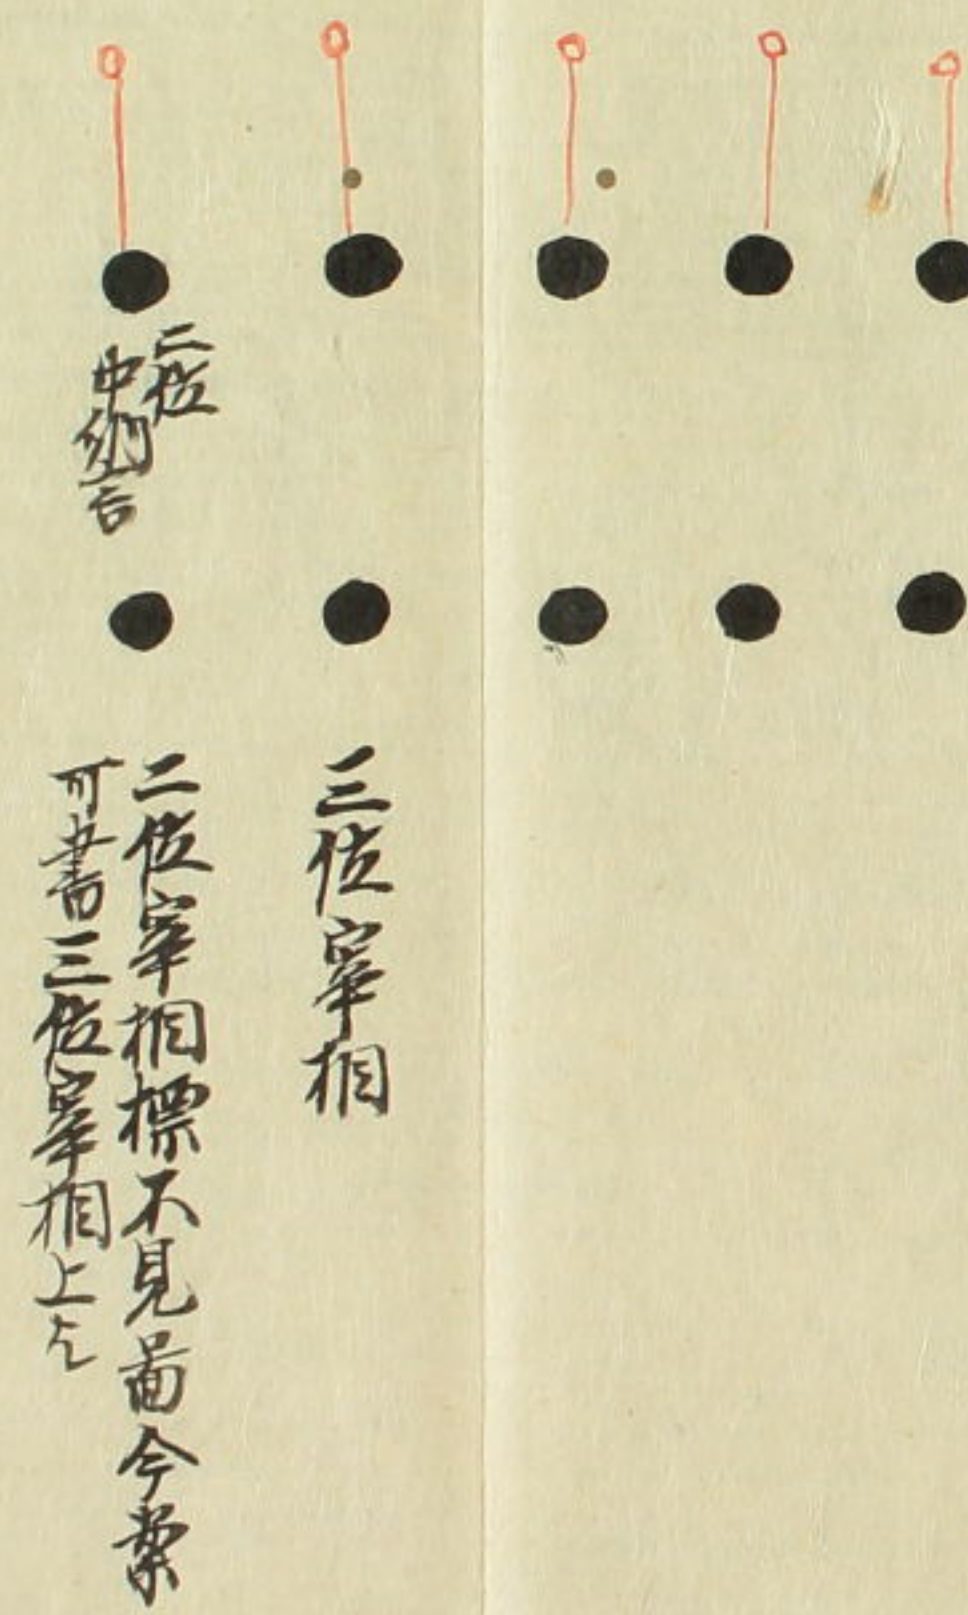 三位宰相
二位
中納言
二位宰相標不見啚今案
可書三位宰相上